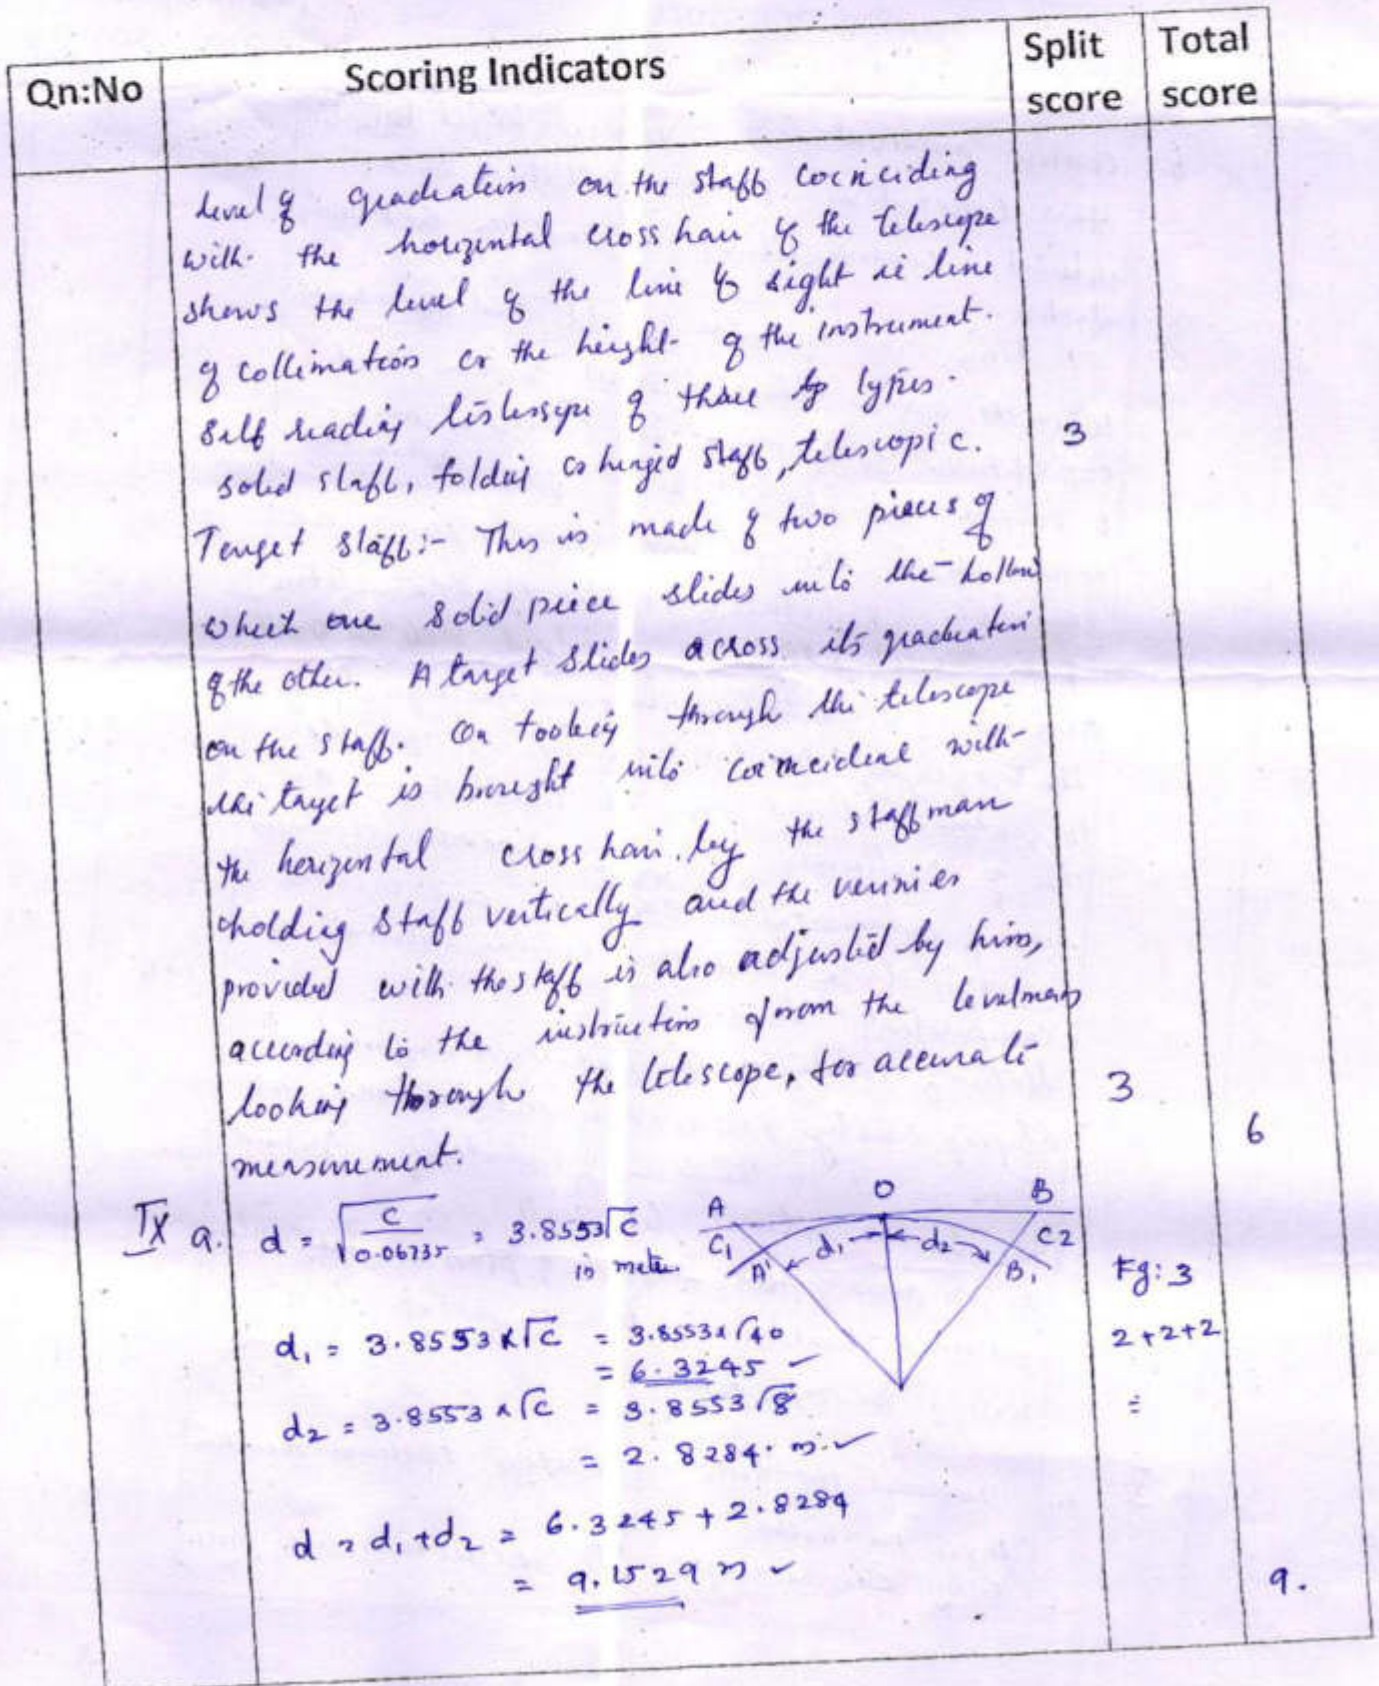 Qn:No Scoring Indicators Split score Total score
level of graduations on the staff coinciding
with the horizontal cross hair of the telescope
shows the level of the line of sight ie line
of collimation or the height of the instrument.
Self reading of three types.
solid staff, folding or hinged staff, telescopic. 3
Target staff:- This is made of two pieces of
which one solid piece slides into the hollow
of the other. A target slides across its graduation
on the staff. On tooking through the telescope
the target is brought into with
the horizontal cross hair by the staff man
holding staff vertically and the vernier
provided with the staff is also adjusted by him,
according to the instruction from the levelman
looking through the telescope, for accurate 3
measurement. 6
IX a. d = √C/0.06735 = 3.8553√C
in meter.
A O B
C1 A' d1 d2 B1 C2
Fg: 3
d1 = 3.8553 x √C = 3.8553 x √40 2+2+2
= 6.3245 ✓
d2 = 3.8553 x √C = 3.8553 √8 =
= 2.8284. m. ✓
d = d1 + d2 = 6.3245 + 2.8284
= 9.1529 m ✓ 9.